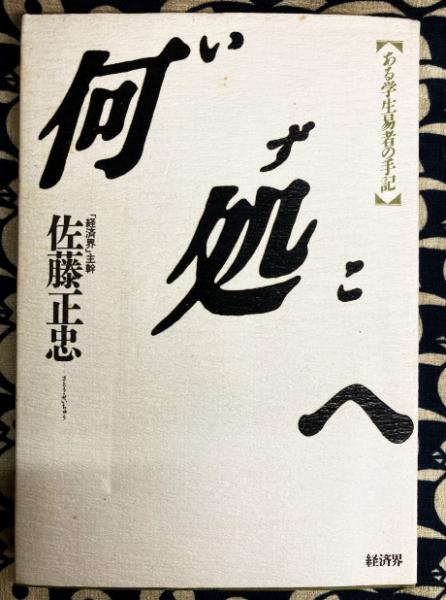 【ある学生易者の手記】
何処へ
いずこ
「経済界」主幹
佐藤正忠
さとうせいちゅう
経済界